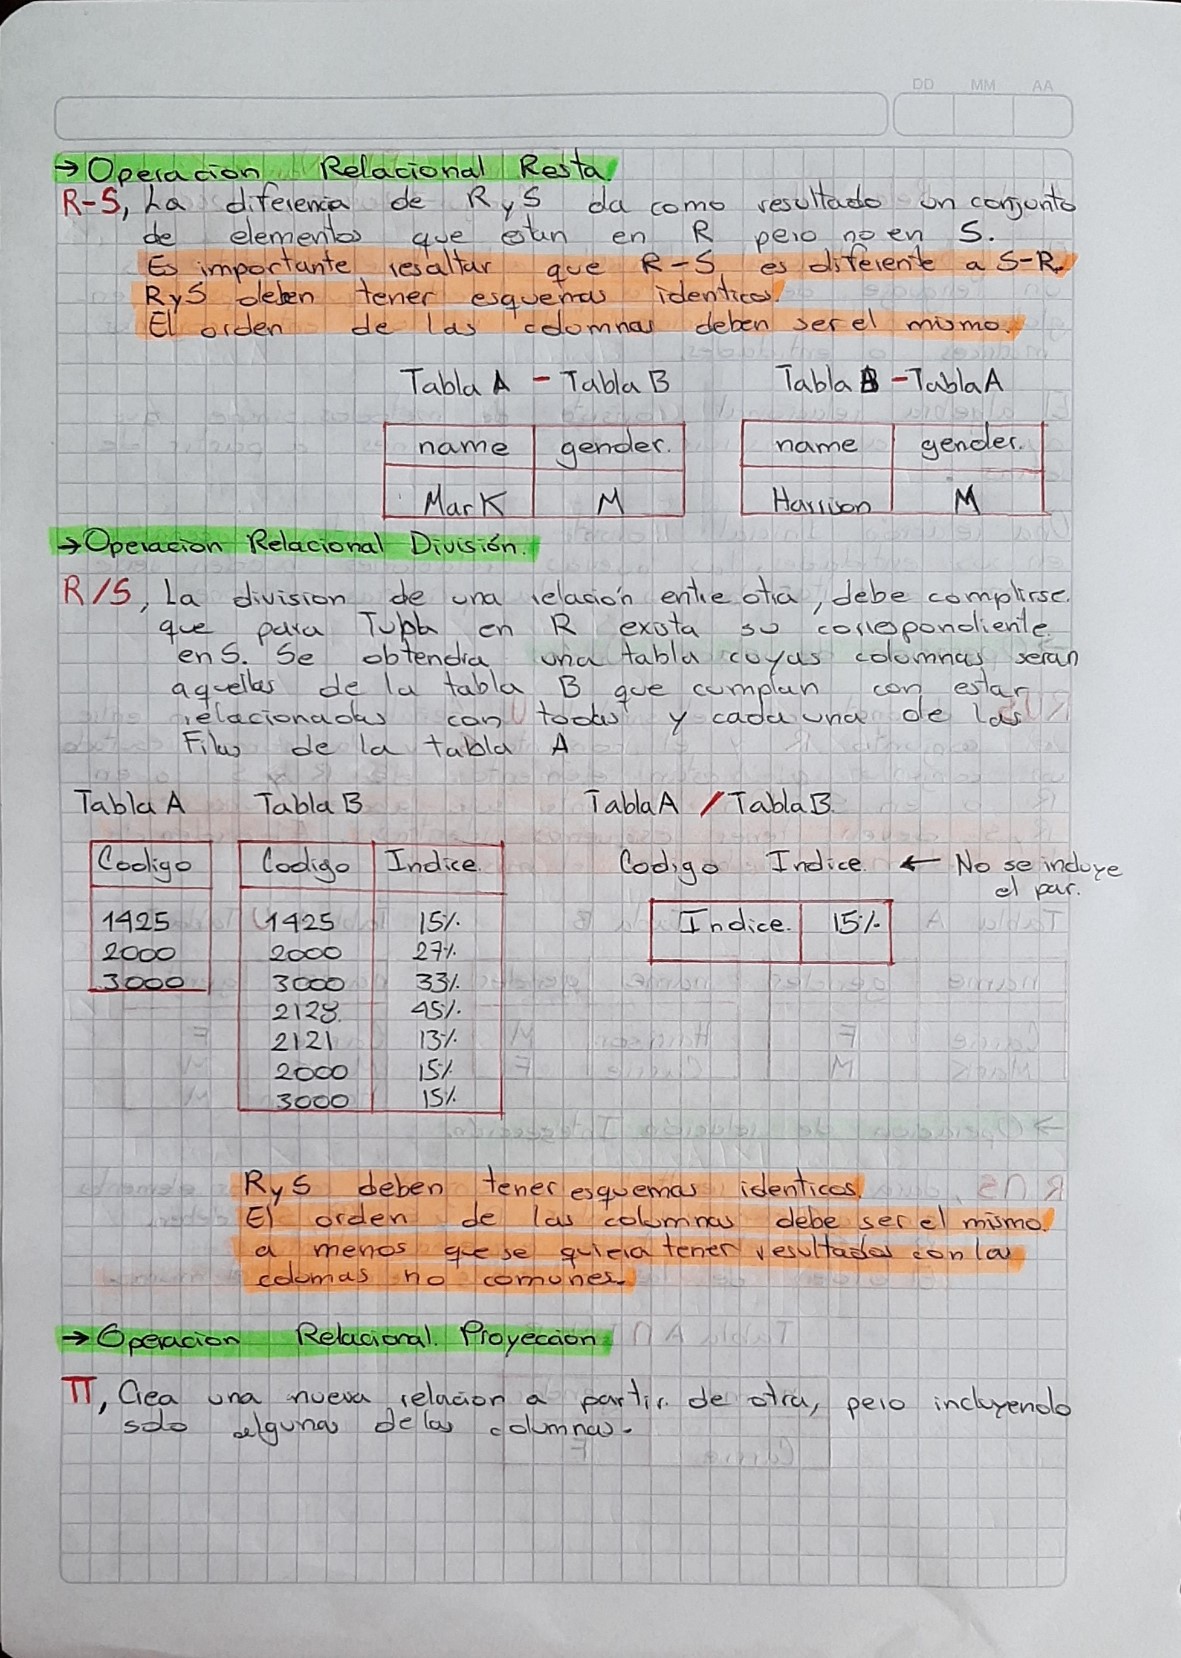 DD MM AA
→ Operacion Relacional Resta.
R-S, La diferencia de R y S da como resultado un conjunto
de elementos que estan en R pero no en S.
Es importante resaltar que R-S es diferente a S-R.
R y S deben tener esquemas identicos.
El orden de las columnas deben ser el mismo.
Tabla A - Tabla B Tabla B - Tabla A
name gender. name gender.
Mark M Harrison M
→ Operacion Relacional División.
R/S, La division de una relación entre otra, debe complirse.
que para Tupla en R exista su correspondiente
en S. Se obtendra una tabla cuyas columnas seran
aquellas de la tabla B que cumplan con estar
relacionadas con todas y cada una de las
Filas de la tabla A
Tabla A Tabla B Tabla A / Tabla B
Codigo Codigo Indice. Codigo Indice. ← No se incluye
el par.
1425 1425 15% Indice. 15%
2000 2000 27%
3000 3000 33%
2128. 45%
2121 13%
2000 15%
3000 15%
R y S deben tener esquemas identicos.
El orden de las columnas debe ser el mismo.
a menos que se quiera tener resultados con las
colomas no comunes.
→ Operacion Relacional. Proyección
π, Crea una nueva relacion a partir de otra, pero incluyendo
solo algunas de las columnas.